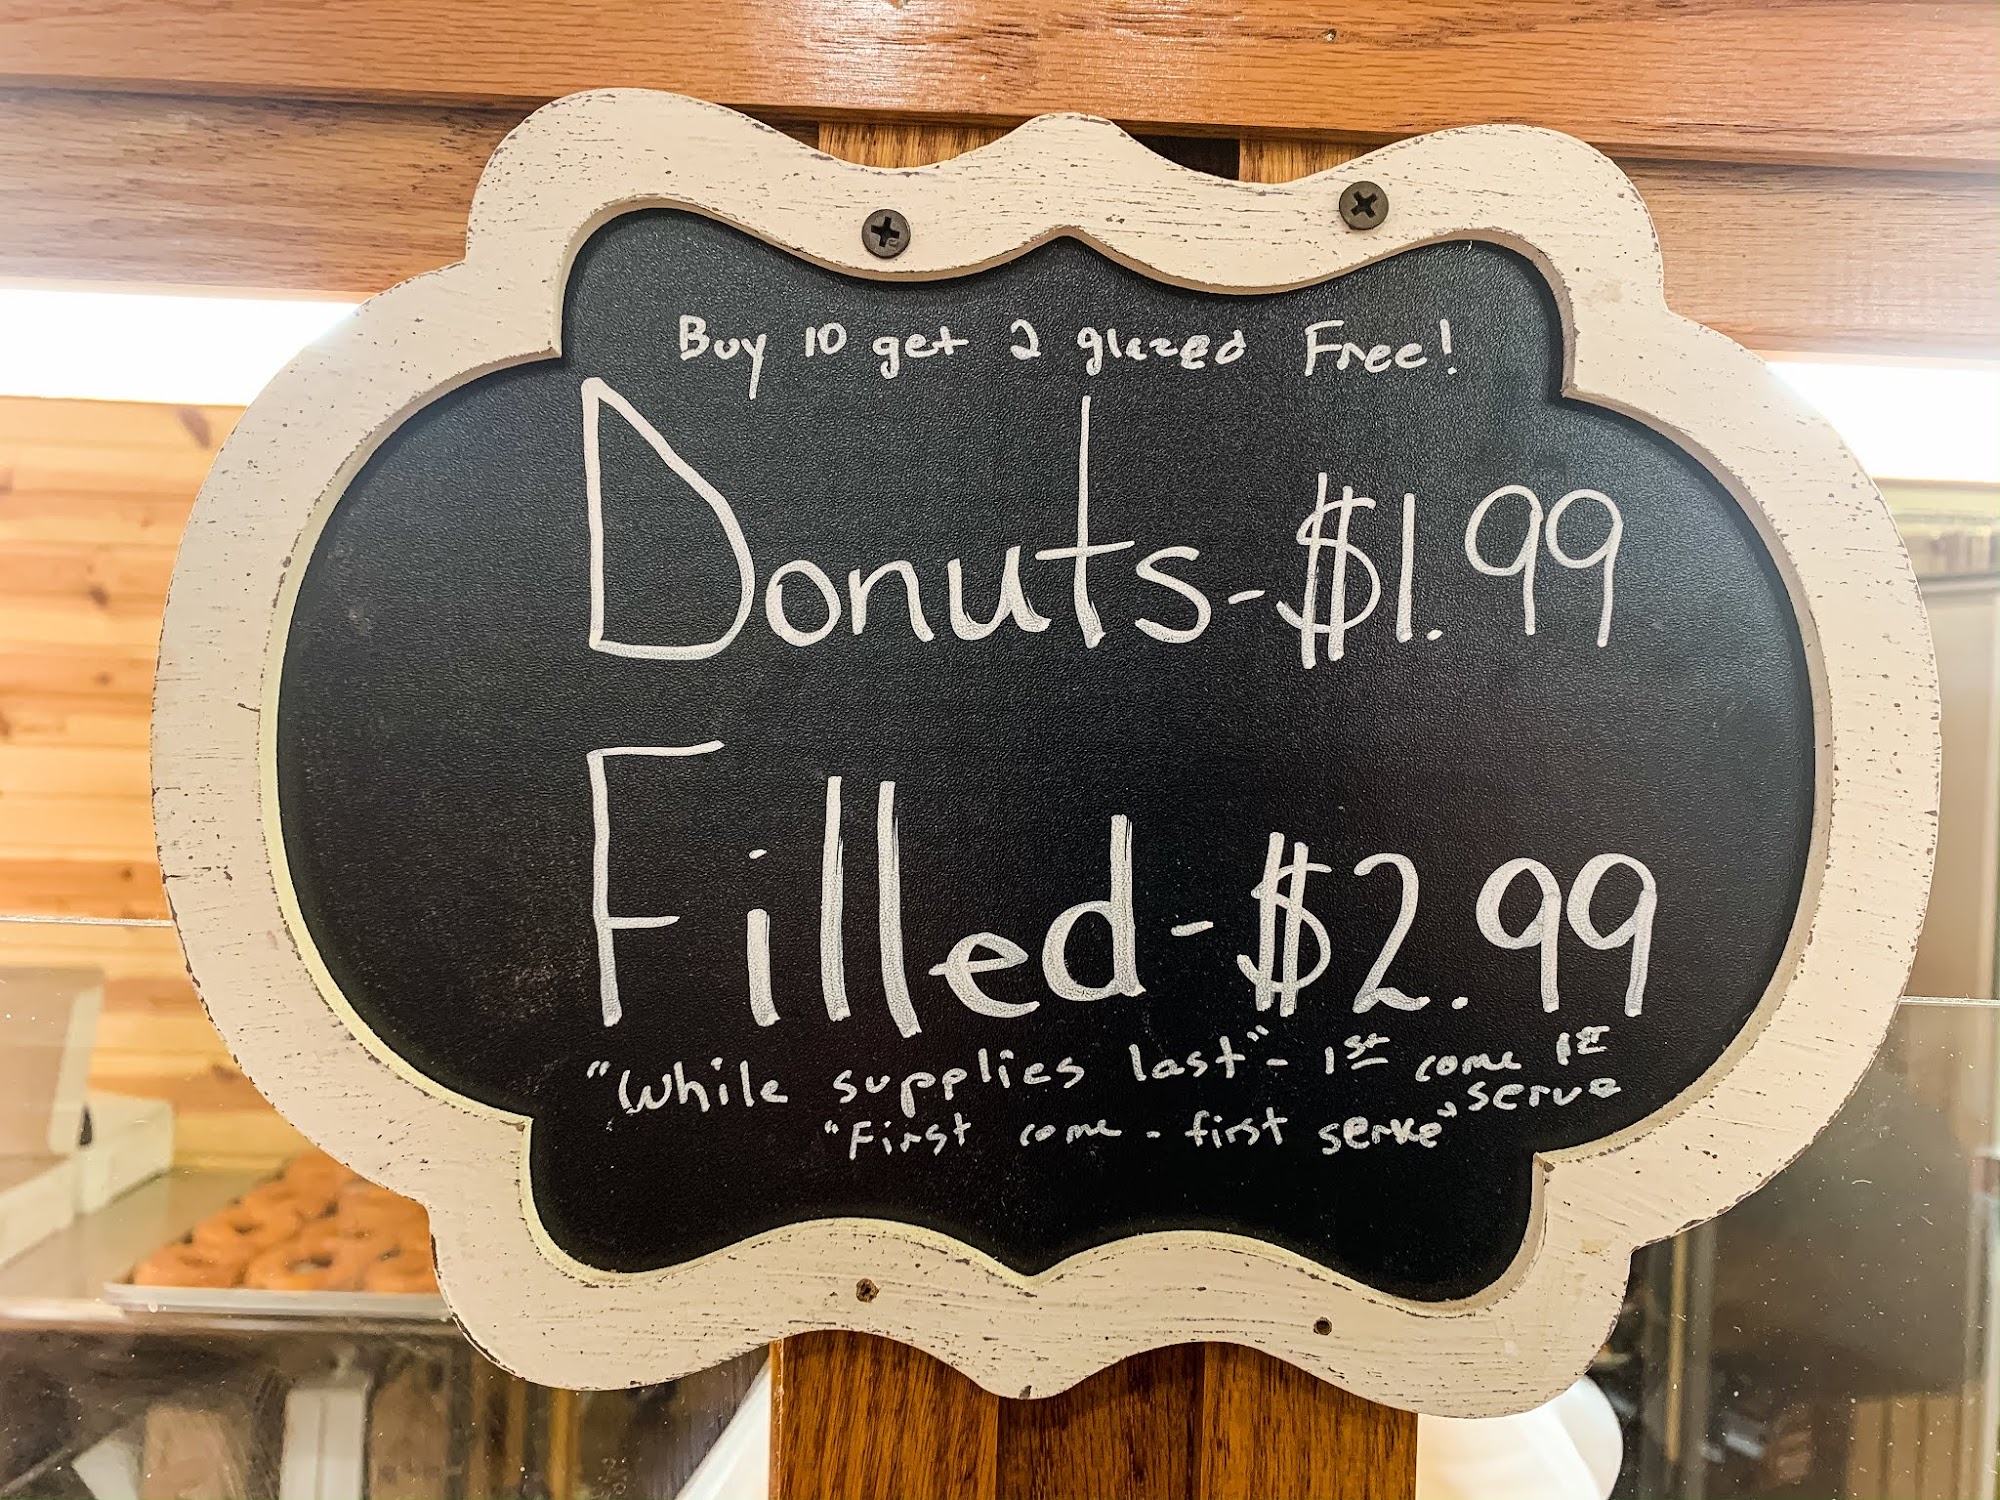 Buy 10 get 2 glazed Free!
Donuts - $1.99
Filled - $2.99
"While supplies last" - 1st come 1st serve
"First come - first serve"